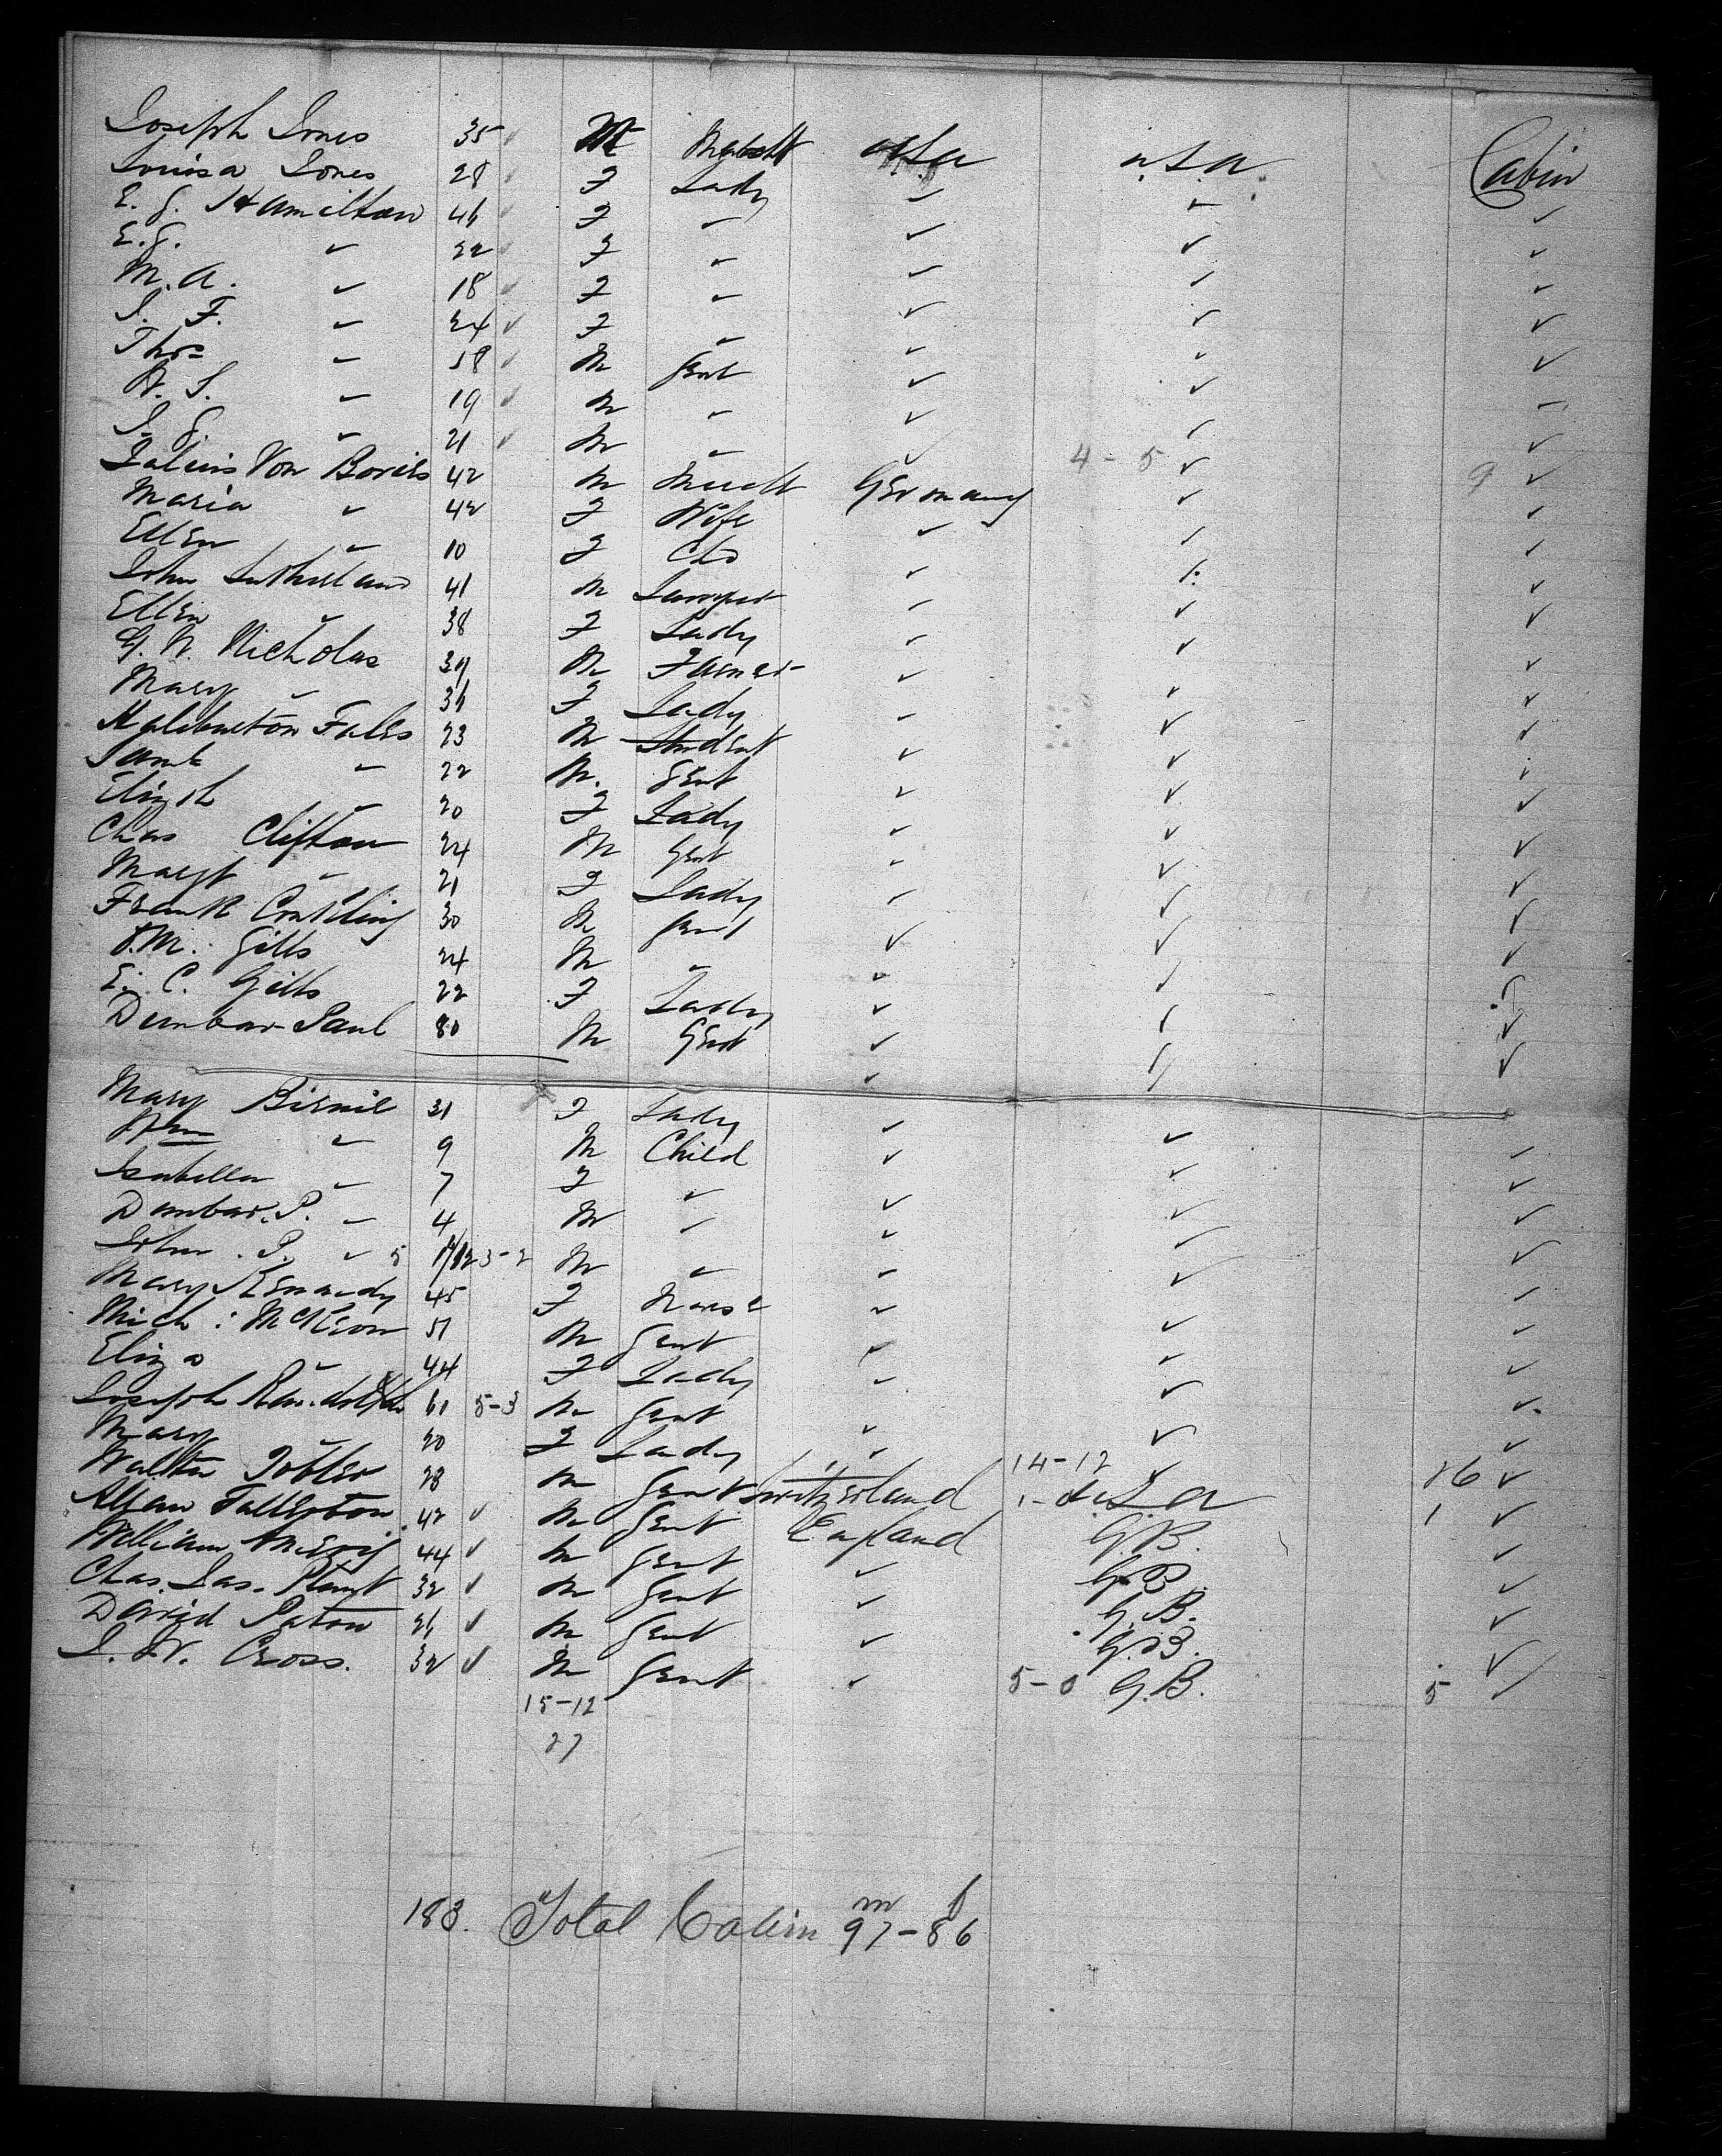 Joseph Jones 35 ✓ M U.S.A U.S.A. Cabin
Louisa Jones 28 ✓ F Lady ✓ ✓ ✓
E. G. Hamilton 46 ✓ F " ✓ ✓ ✓
E. G. " 22 ✓ F " ✓ ✓ ✓
M. A. " 18 ✓ F " ✓ ✓ ✓
J. F. " 24 ✓ F " ✓ ✓ ✓
Thos " 18 ✓ M Gent ✓ ✓
W. S. " 19 ✓ M " ✓ ✓ ✓
J. G. " 21 ✓ M " ✓ 4 - 5 ✓ 9 ✓
Von Bories 42 M Germany ✓ ✓
Maria " 42 F Wife ✓ ✓ ✓
Ellen " 10 F ✓ ✓ ✓
John Sutherland 41 M ✓ ✓ ✓
Ellen " 38 F Lady ✓ ✓ ✓
G. W. Nicholas 39 M Farmer ✓ ✓ ✓
Mary " 36 F Lady ✓ ✓ ✓
Haliburton Fales 23 M Student ✓ ✓ ✓
Saml " 22 M. Gent ✓ ✓ ✓
Elizth " 20 F Lady ✓ ✓ ✓
Chas Clifton 24 M Gent ✓ ✓ ✓
Margt " 21 F Lady ✓ ✓ ✓
Frank 30 M Gent ✓ ✓ ✓
Gills 24 M " ✓ ✓
E. C. Gills 22 F Lady ✓ ✓
Dunbar Paul 80 M Gent ✓ ✓
Mary Birnie 31 F Lady ✓ ✓ ✓
Wm " 9 M Child ✓ ✓ ✓
Isabella " 7 F " ✓ ✓ ✓
Dunbar. P. " 4 M " ✓ ✓ ✓
John. P. " 5 3-2 M " ✓ ✓ ✓
Mary Kennedy 45 F Nurse ✓ ✓ ✓
Mich: McKeon 51 M Gent ✓ ✓ ✓
Eliza " 44 F Lady ✓ ✓ ✓
Joseph Randolph 61 5-3 M Gent ✓ ✓ ✓
Mary " 20 F Lady ✓ 14-12 ✓ 26 ✓
Walter Tobler 28 M Gent Switzerland 1- U.S.A 1 ✓
Allan Fullerton 42 ✓ M Gent England G.B. ✓
William 44 ✓ M Gent ✓ G.B. ✓
Chas. Jas. Plant 32 ✓ M Gent ✓ G.B. ✓
David Paton 26 ✓ M Gent ✓ G.B. ✓
J. W. Cross. 32 ✓ M Gent ✓ 5-0 G.B. 5 ✓
15-12
27
m f
183. Total Cabin 97-86